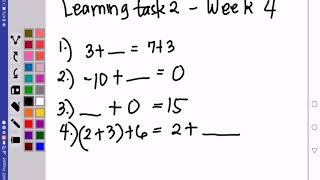 Learning task 2 - Week 4
1.) 3 + __ = 7+3
2.) -10 + __ = 0
3.) __ + 0 = 15
4.) (2+3)+6 = 2 + ___